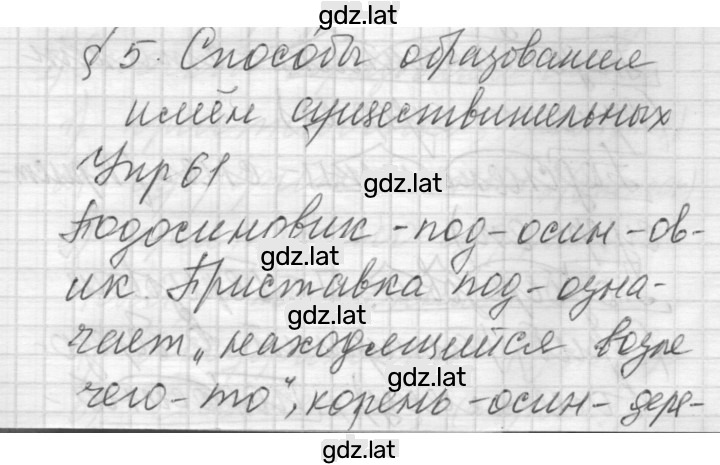 gdz.lat
§ 5. Способы образования
имён существительных
Упр 61
gdz.lat
Подосиновик - под-осин-ов-
gdz.lat
ик. Приставка под- озна-
gdz.lat
чает „находящийся возле
gdz.lat
чего-то", корень -осин- дере-
gdz.lat